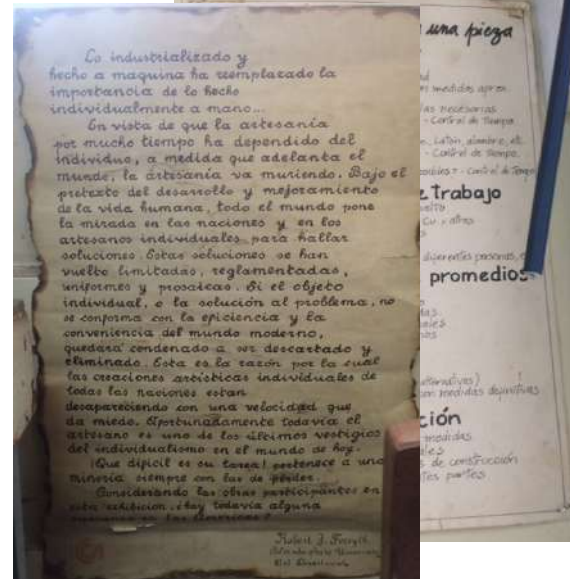 Lo industrializado y
hecho a maquina ha reemplazado la
importancia de lo hecho
individualmente a mano...
En vista de que la artesanía
por mucho tiempo ha dependido del
individuo, a medida que adelanta el
mundo, la artesanía va muriendo. Bajo el
pretexto del desarrollo y mejoramiento
de la vida humana, todo el mundo pone
la mirada en las naciones y en los
artesanos individuales para hallar
soluciones. Estas soluciones se han
vuelto limitadas, reglamentadas,
uniformes y prosaicas. Si el objeto
individual, o la solución al problema, no
se conforma con la eficiencia y la
conveniencia del mundo moderno,
quedará condenado a ser descartado y
eliminado. Esta es la razón por la cual
las creaciones artísticas individuales de
todas las naciones estan
desapareciendo con una velocidad que
da miedo. Oportunadamente todavía el
artesano es uno de los últimos vestigios
del individualismo en el mundo de hoy.
¡Que dificil es su tarea! pertenece a una
minoría siempre con las de perder.
Considerando las obras participantes en
esta exhibicion ¿hay todavía alguna
en las Americas?
Robert J. Forsyth
una pieza
medidas aprox.
las necesarias
- Control de Tiempo
Latón, alambre, etc.
- Control de Tiempo
- Control de Tiempo
e trabajo
diferentes personas,
promedios
alternativas)
con medidas definitivas
ción
medidas
de construcción
tes partes